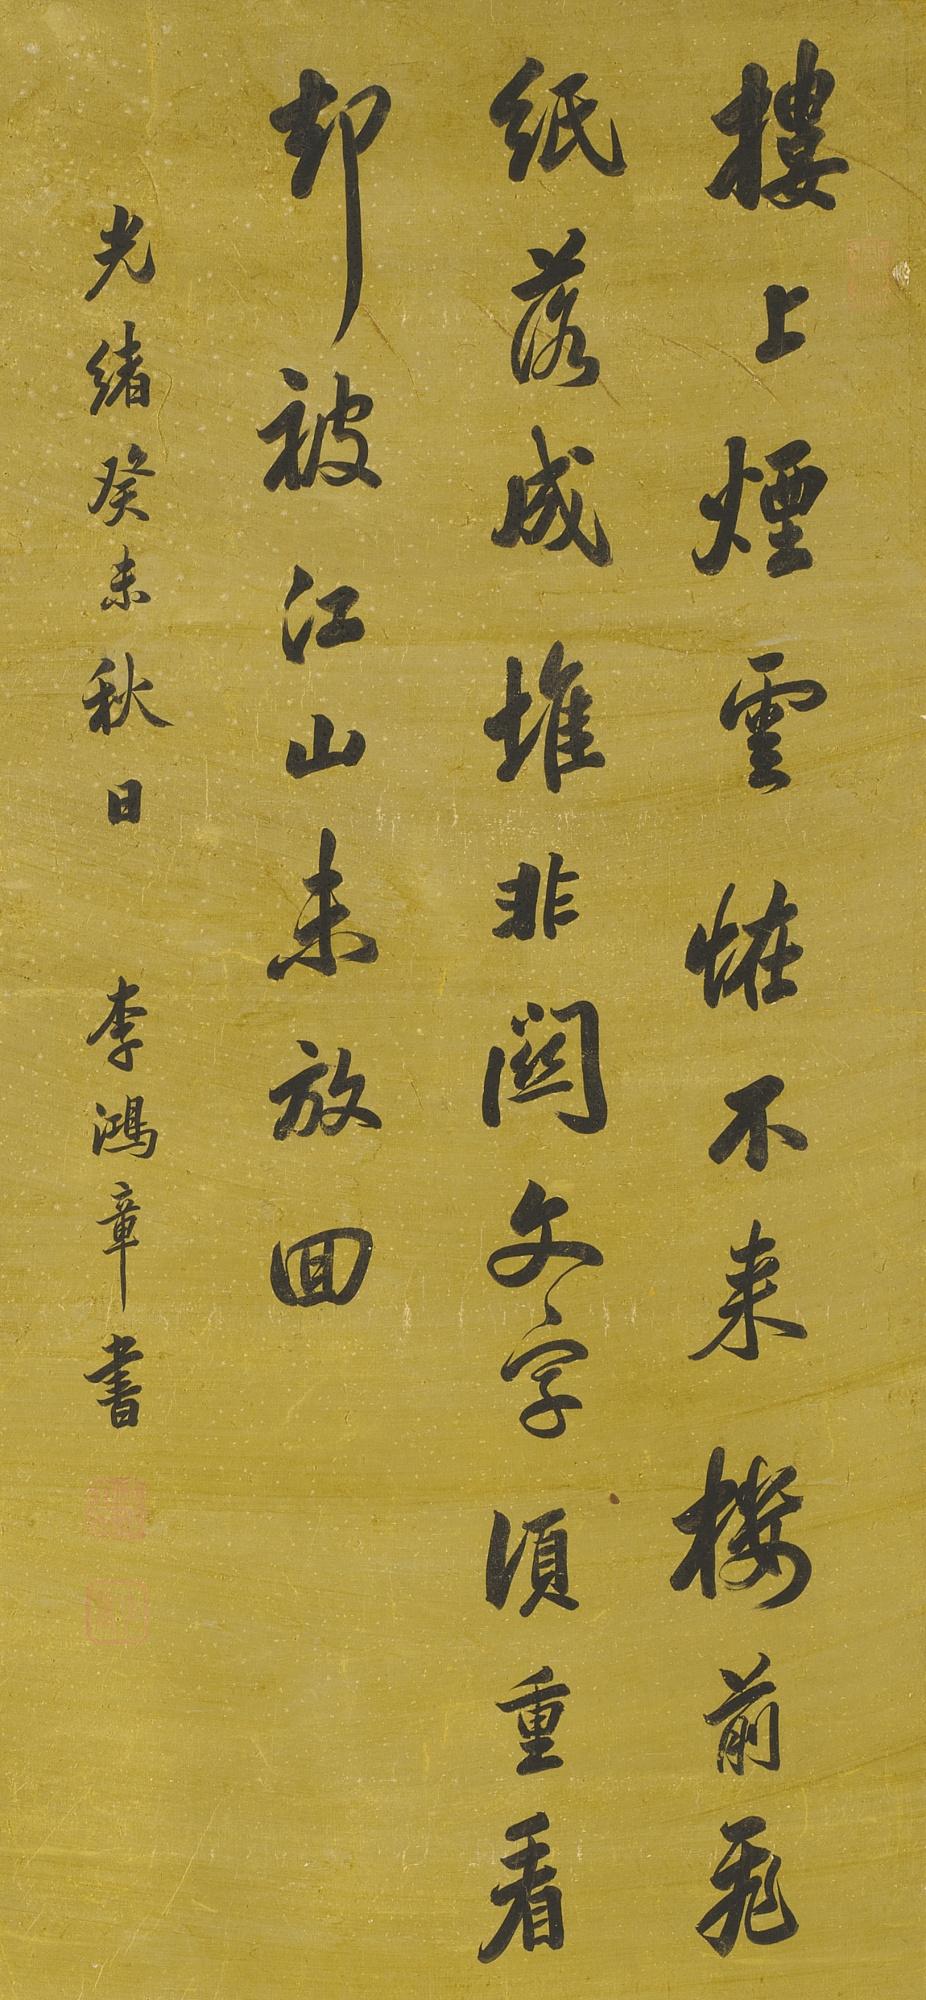 樓上煙雲恠不来樓前飛
紙落成堆非關文字須重看
却被江山未放回
光緒癸未秋日 李鴻章書